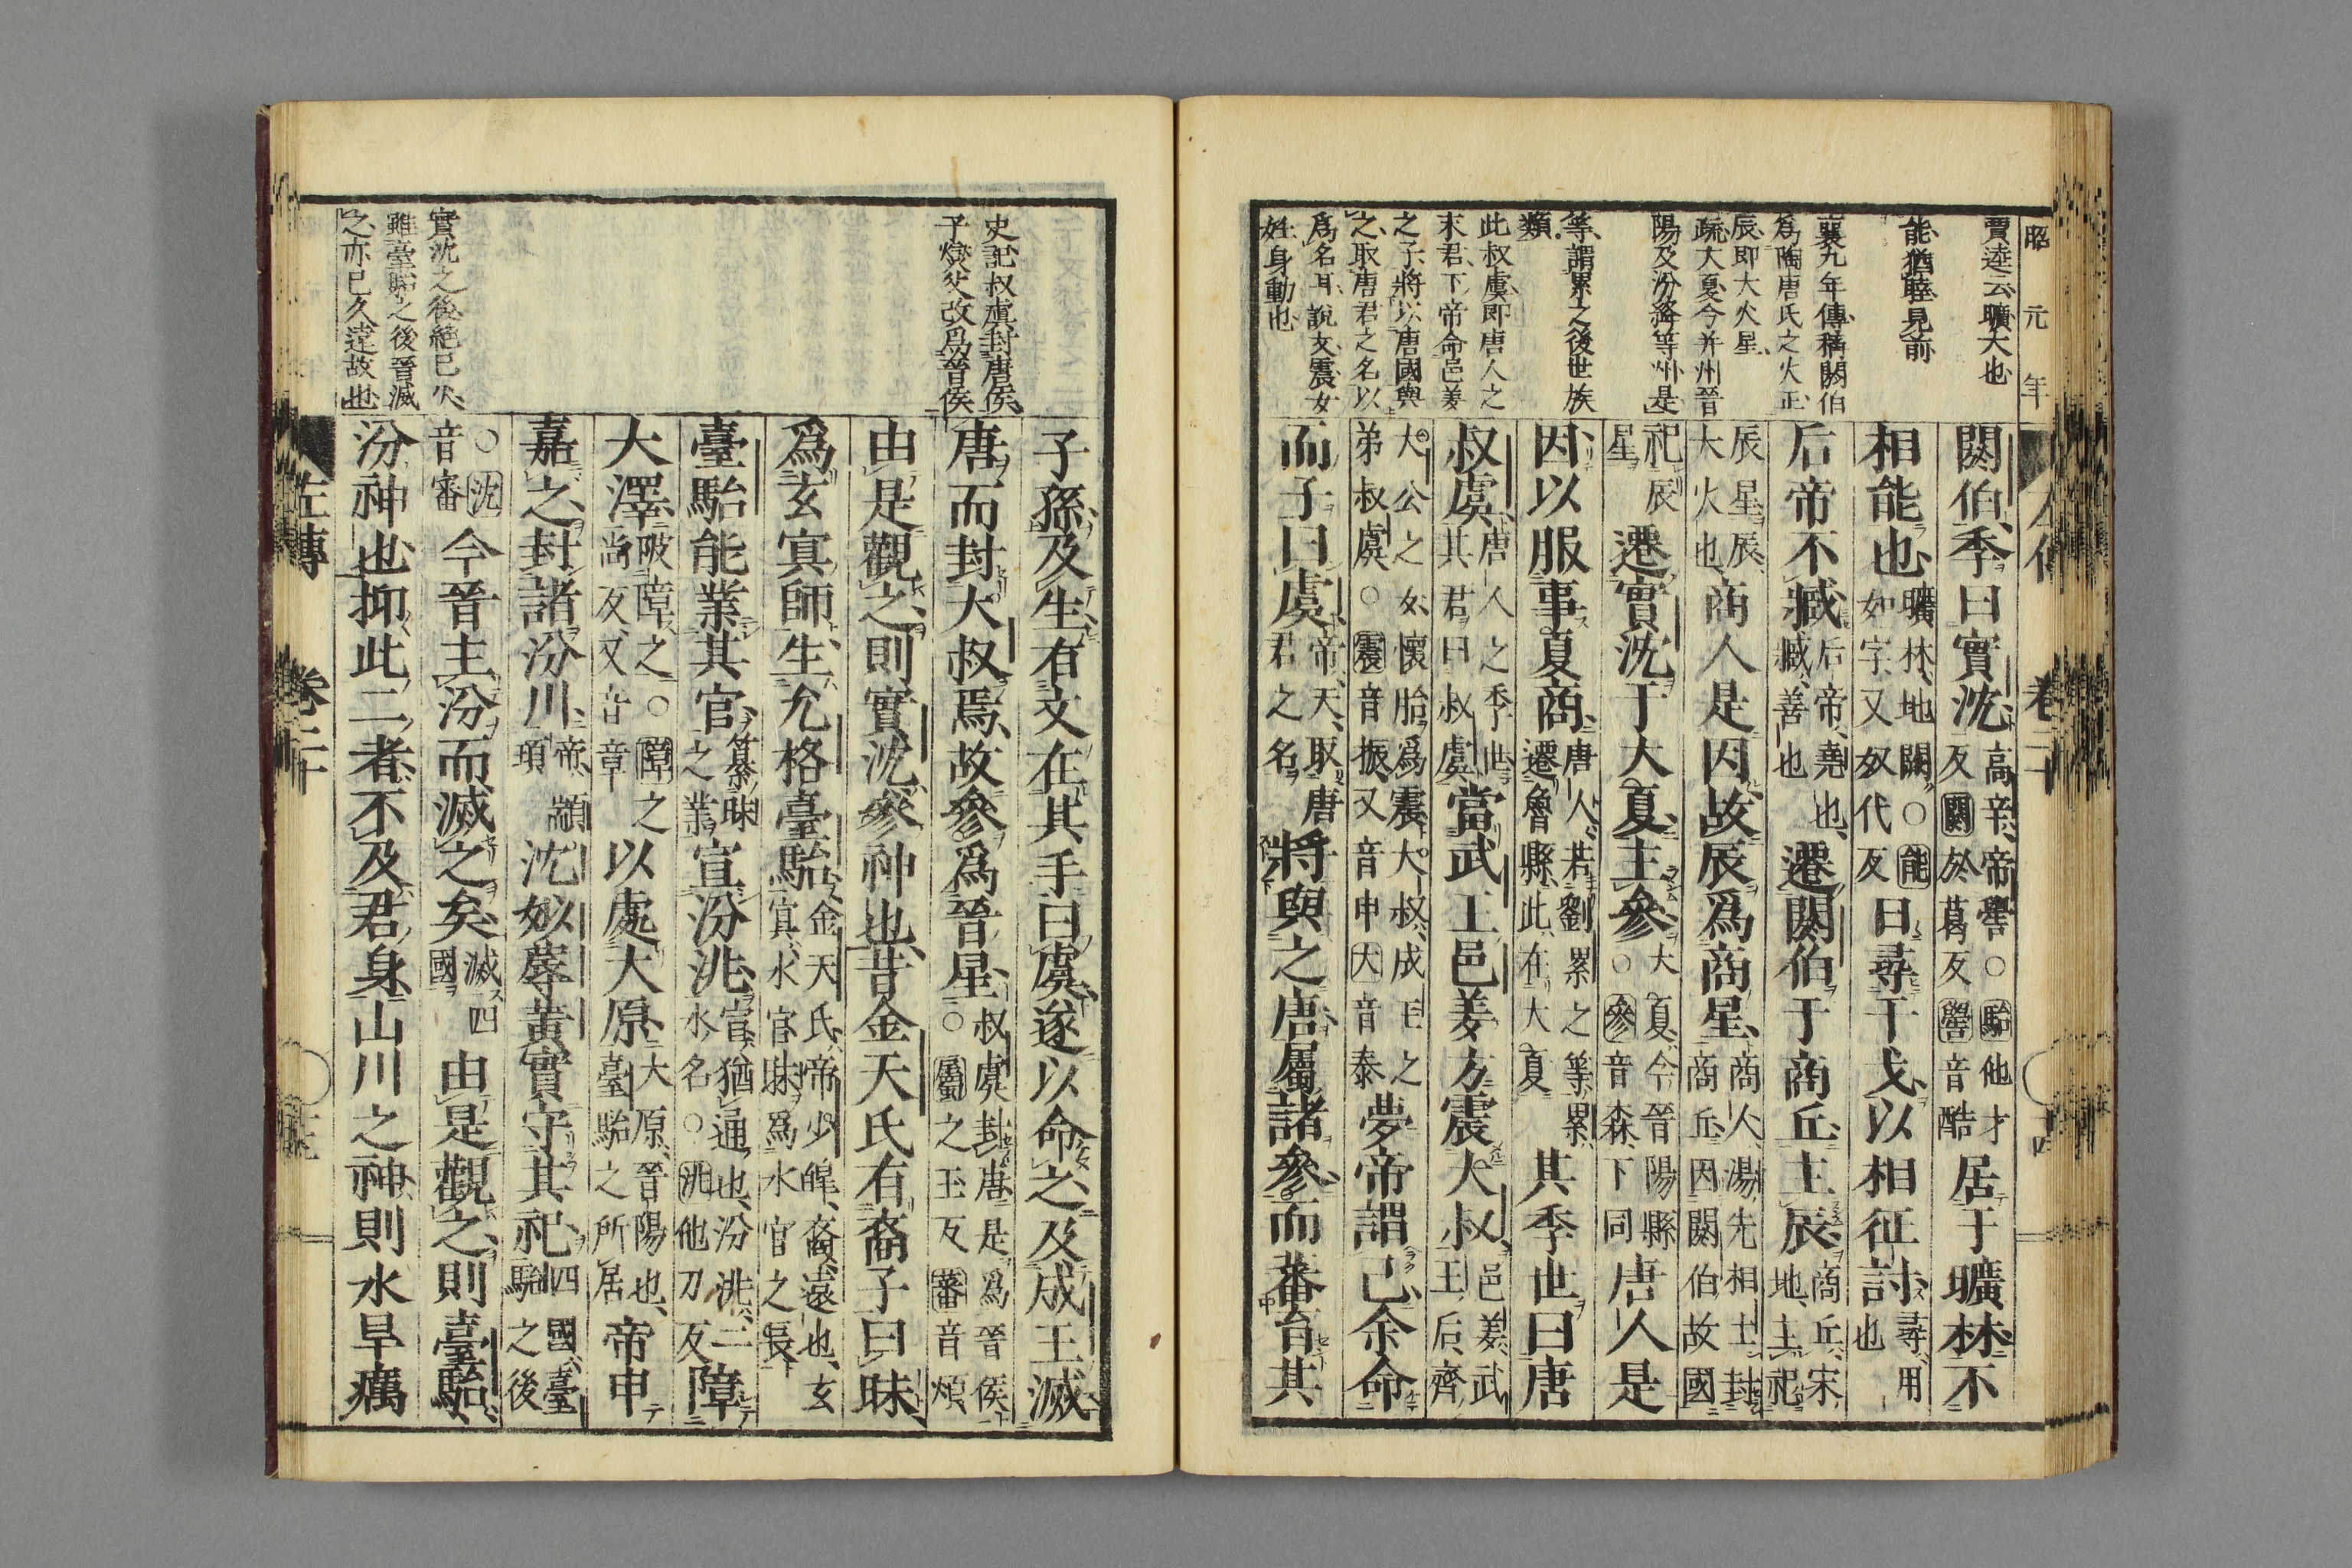 昭元年
左傳 卷二十 四
賈逵云曠大也
能猶睦見前
襄九年傳稱閼伯
爲陶唐氏之火正
辰即大火星
疏大夏今并州晉
陽及汾絳等州是
等謂累之後世族
類
此叔虞即唐人之
末君下帝命邑姜
之子將以唐國與
之取唐君之名以
爲名耳說文震女
妊身動也
閼伯季曰實沈高辛帝嚳○駘他才反閼於葛反嚳音酷居于曠林不
相能也曠林地闕○能如字又奴代反曰尋干戈以相征討尋用也
后帝不臧后帝堯也臧善也遷閼伯于商丘主辰商丘宋地主祀
辰星辰大火也商人是因故辰爲商星商人湯先相土封商丘因閼伯故國
祀辰星遷實沈于大夏主參大夏今晉陽縣○參音森下同唐人是
因以服事夏商唐人若劉累之等累遷魯縣此在大夏其季世曰唐
叔虞唐人之季世其君曰叔虞當武王邑姜方震大叔邑姜武王后齊
大公之女懷胎爲震大叔成王之弟叔虞○震音振又音申大音泰夢帝謂已余命
而子曰虞帝天取唐君之名將與之唐屬諸參而蕃育其
史記叔虞封唐侯
子燮父改爲晉侯
實沈之後絕已久
雖臺駘之後晉滅
之亦已久遠故也
子孫及生有文在其手曰虞遂以命之及成王滅
唐而封大叔焉故參爲晉星叔虞封唐是爲晉侯○屬之玉反蕃音煩
由是觀之則實沈參神也昔金天氏有裔子曰昧
爲玄冥師生允格臺駘金天氏帝少皞裔遠也玄冥水官昧爲水官之長
臺駘能業其官纂昧之業宣汾洮宣猶通也汾洮二水名○洮他刀反障
大澤陂障之○障之尚反又音章以處大原大原晉陽也臺駘之所居帝申
嘉之封諸汾川帝顓頊沈姒蓐黃實守其祀四國臺駘之後
○沈音審今晉主汾而滅之矣滅四國由是觀之則臺駘
汾神也抑此二者不及君身山川之神則水旱癘
左傳 卷二十